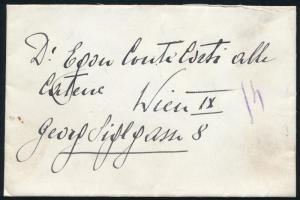 Dr Egon Conte Corti alle
Catene Wien IX
Georg Siglgasse 8